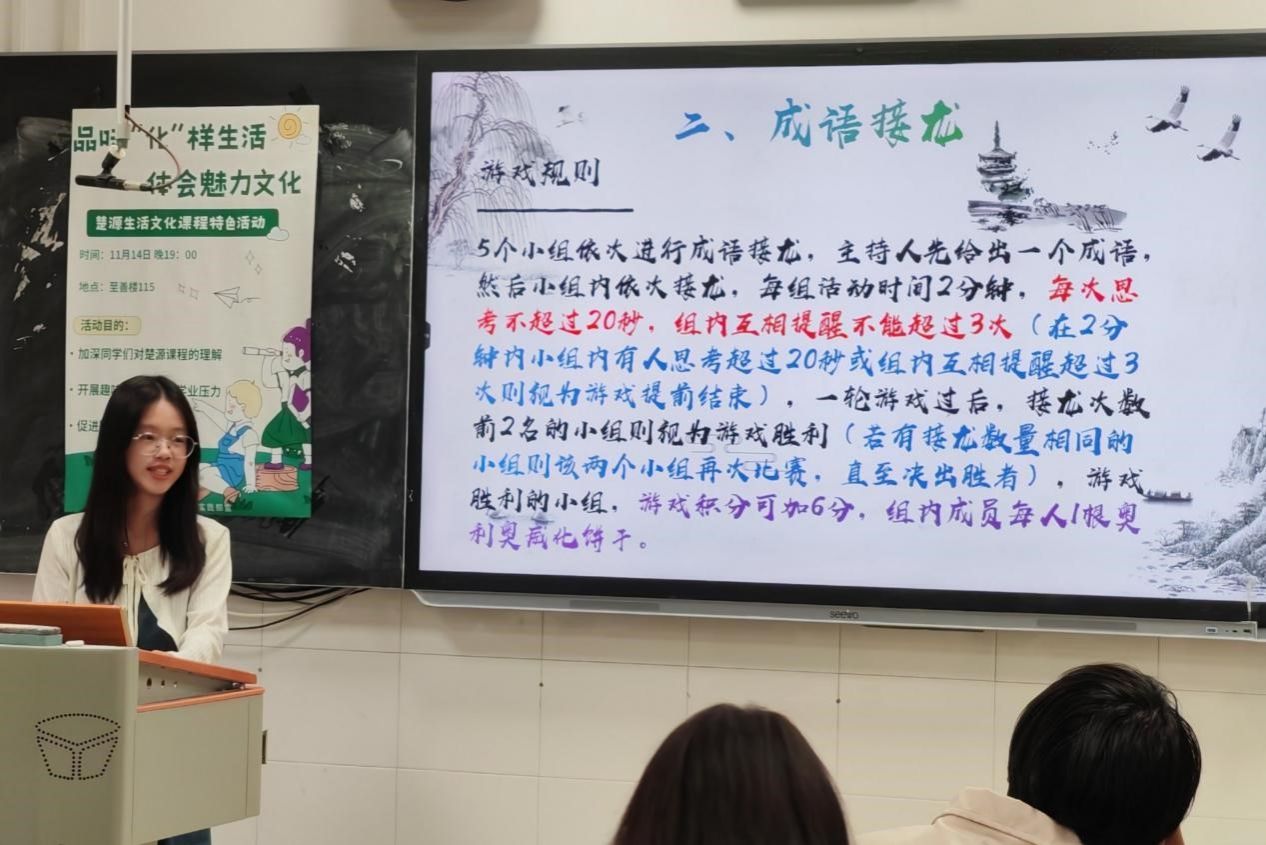 品味“化”样生活
体会魅力文化
楚源生活文化课程特色活动
时间：11月14日 晚19：00
地点：至善楼115
活动目的：
· 加深同学们对楚源课程的理解
· 开展趣 学业压力
· 促进
二、成语接龙
游戏规则
5个小组依次进行成语接龙，主持人先给出一个成语，
然后小组内依次接龙，每组活动时间2分钟，每次思
考不超过20秒，组内互相提醒不能超过3次（在2分
钟内小组内有人思考超过20秒或组内互相提醒超过3
次则视为游戏提前结束），一轮游戏过后，接龙次数
前2名的小组则视为游戏胜利（若有接龙数量相同的
小组则该两个小组再次比赛，直至决出胜者），游戏
胜利的小组，游戏积分可加6分，组内成员每人1根奥
利奥威化饼干。
seewo